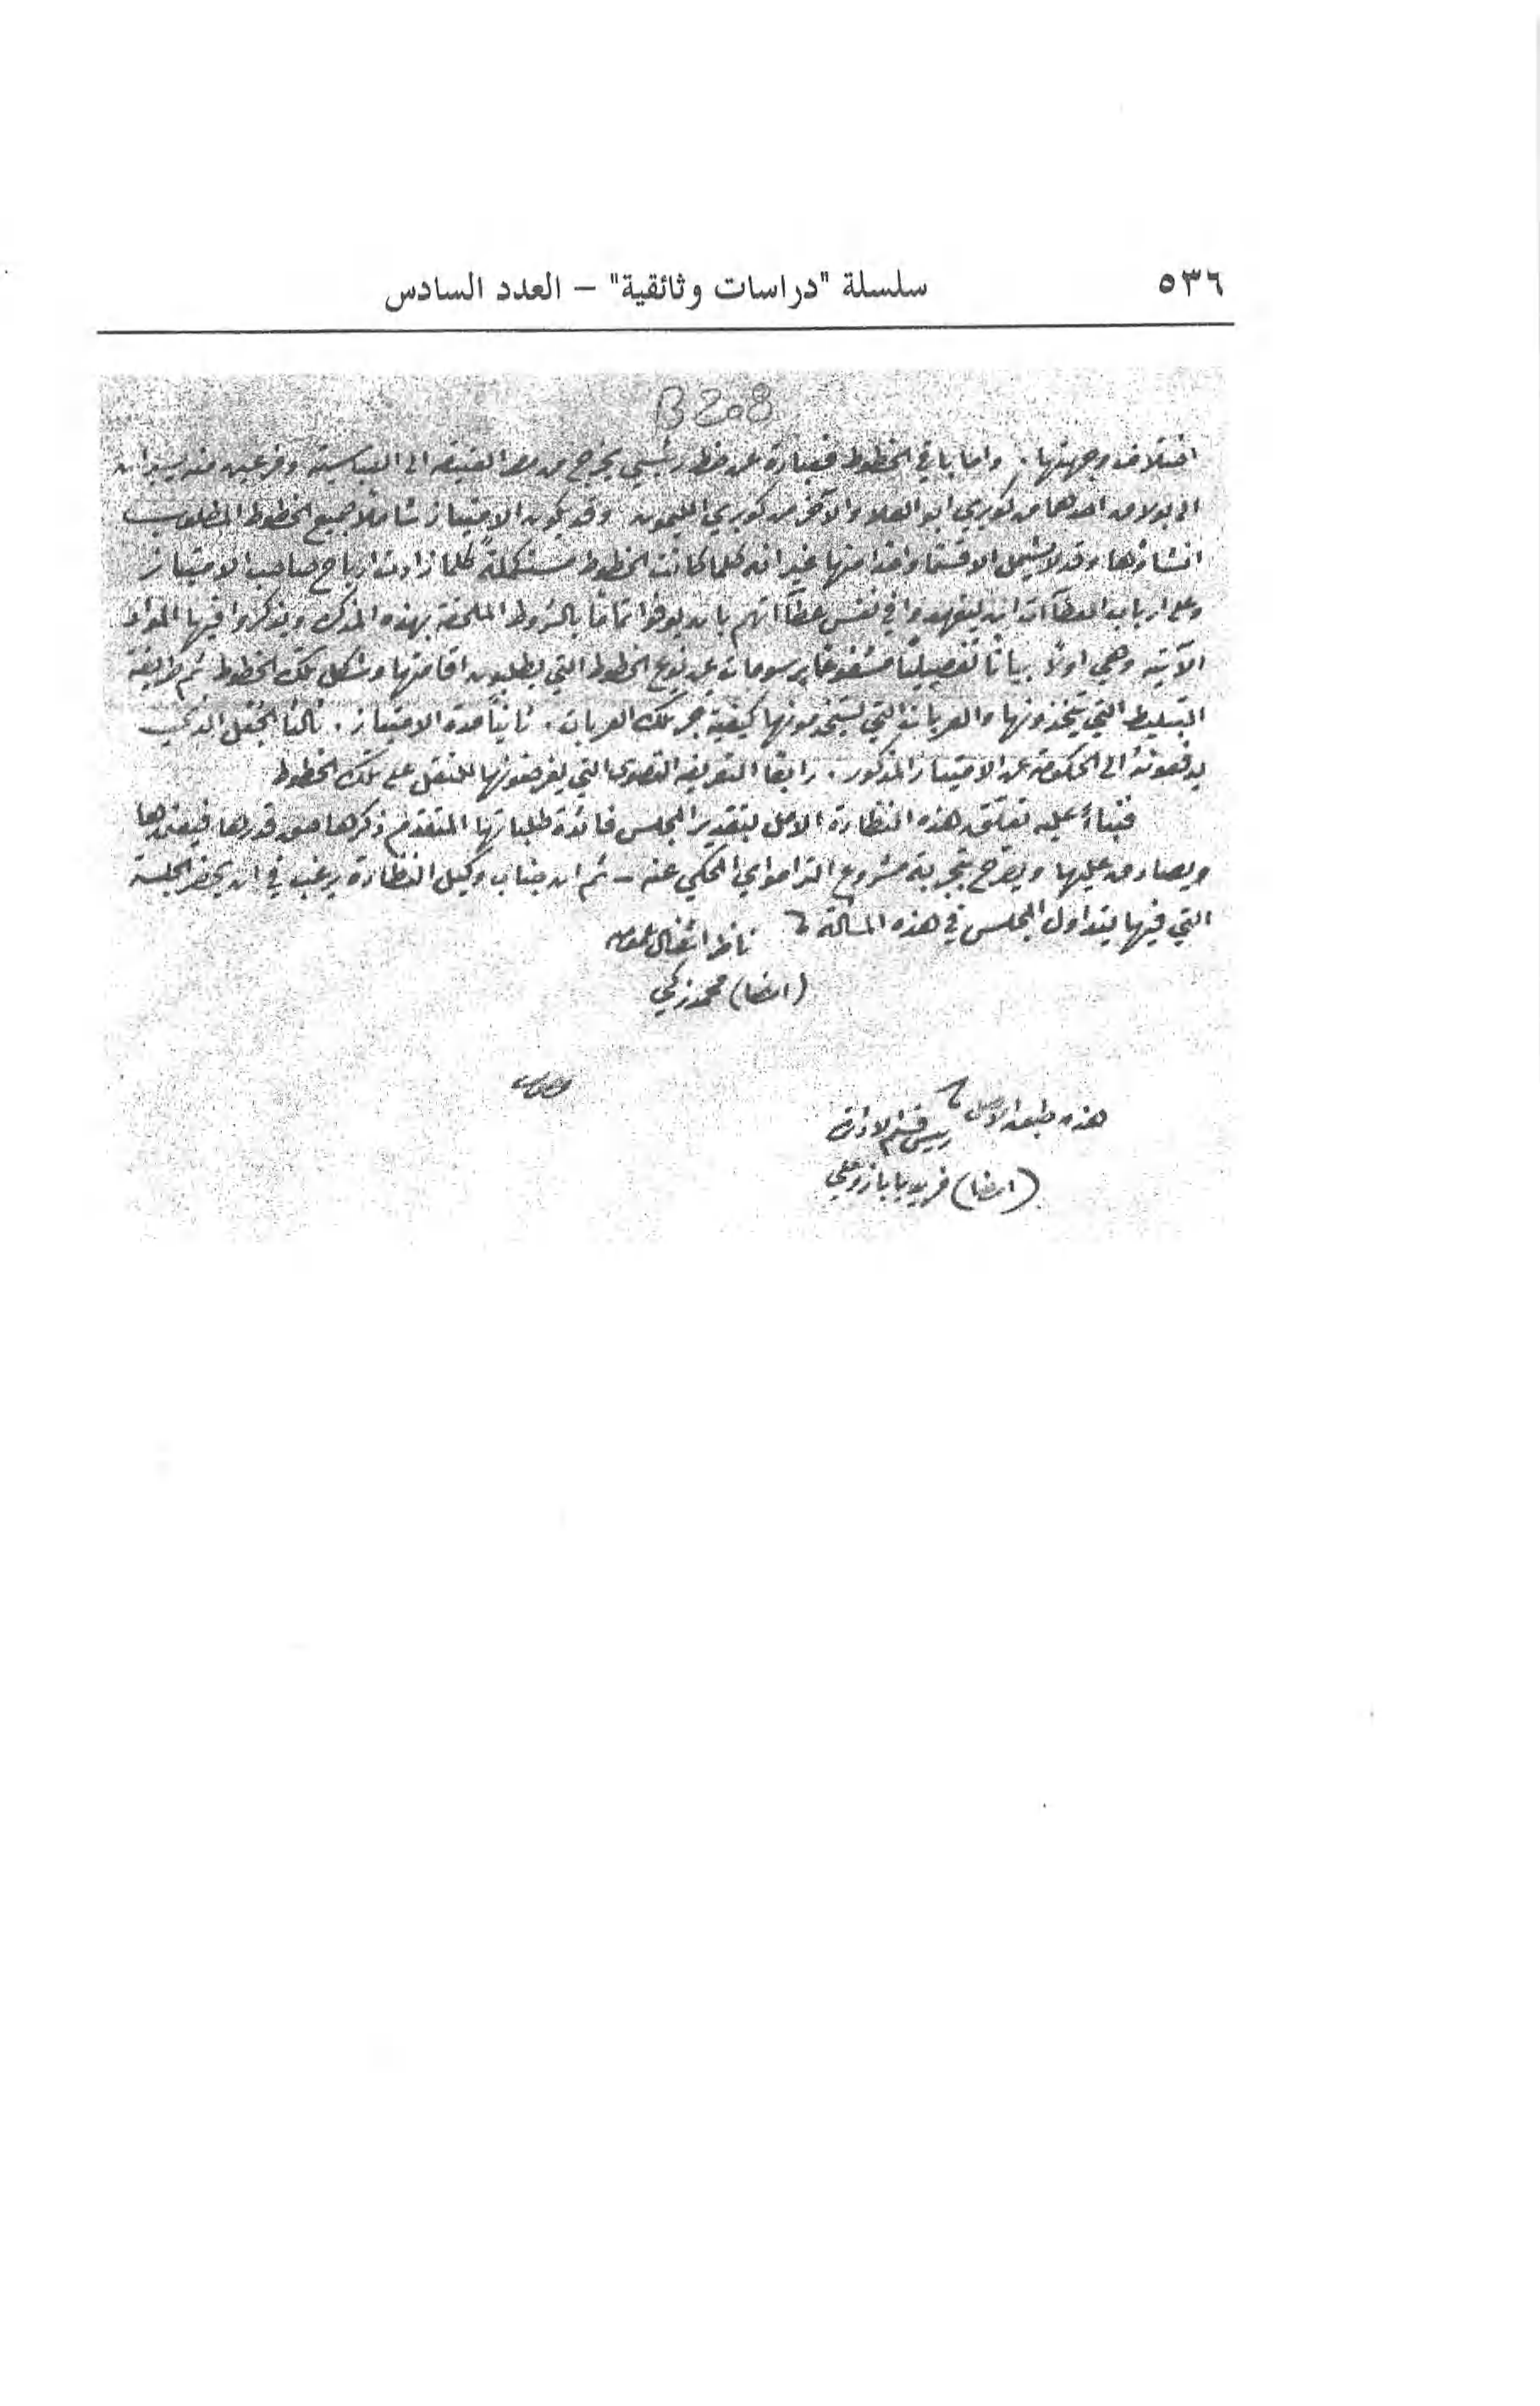 ٥٣٦
سلسلة "دراسات وثائقية" – العدد السادس
B 208
اختلاف وجهتها . واما باقي الخطوط فعبارة عن خط رئيسي يخرج من مصر العتيقه الى العباسيه وفرعين منه يسيران
الى بولاق احدهما من كوبري ابو العلا والآخر من كوبري الليمون وقد يكون الامتياز شاملا جميع الخطوط المطلوب
انشاؤها وقد لا يشمل الا قسما واحدا منها غير انه كلما كانت الخطوط مستكملة كلما زادت ارباح صاحب الامتياز
وعلى ارباب العطآات ان يتعهدوا في نفس عطآاتهم بان يوفوا تماما بالشروط الملحقة بهذه المذكرة ويذكروا فيها المواد
الآتيه وهي اولا بيانا تفصيليا مشفوعا برسومات عن نوع الخطوط التي يطلبون اقامتها وشكل تلك الخطوط ثم طريقة
التبليط التي يتخذونها والعربات التي يستخدمونها كيفية جر تلك العربات . ثانيا مدة الامتياز . ثالثا الجعل الذي
يدفعونه الى الحكومة عن الامتياز المذكور . رابعا التعريفه القصوى التي يفرضونها للنقل على تلك الخطوط
فبناء عليه تعلق هذه النظارة الامل بتقدير المجلس فائدة طلباتها المتقدم ذكرها حق قدرها فيعتمدها
ويصادق عليها ويصرح بتجربة مشروع الترامواي المحكي عنه – ثم ان جناب وكيل النظارة يرغب في ان يحضر الجلسة
التي فيها يتداول المجلس في هذه المسألة
ناظر اشغال عموميه
(امضا) محمد زكي
هذه طبق الاصل
رئيس قسم الادارة
(امضا) فريد